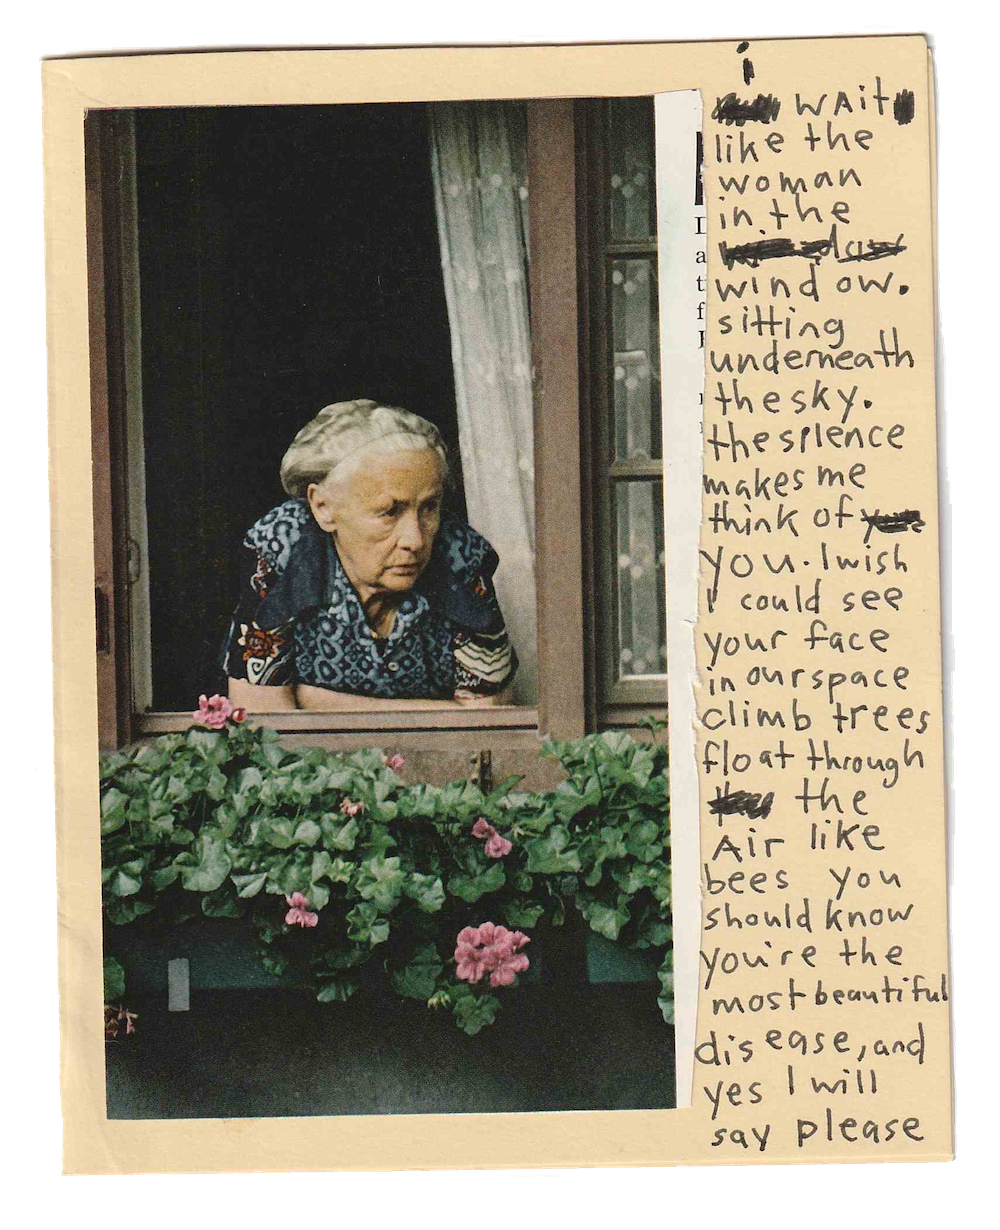 i
WAit
like the
woman
in the
window.
sitting
underneath
the sky.
the silence
makes me
think of
you. I wish
I could see
your face
in our space
climb trees
float through
the
Air like
bees you
should know
you're the
most beautiful
disease, and
yes I will
say please